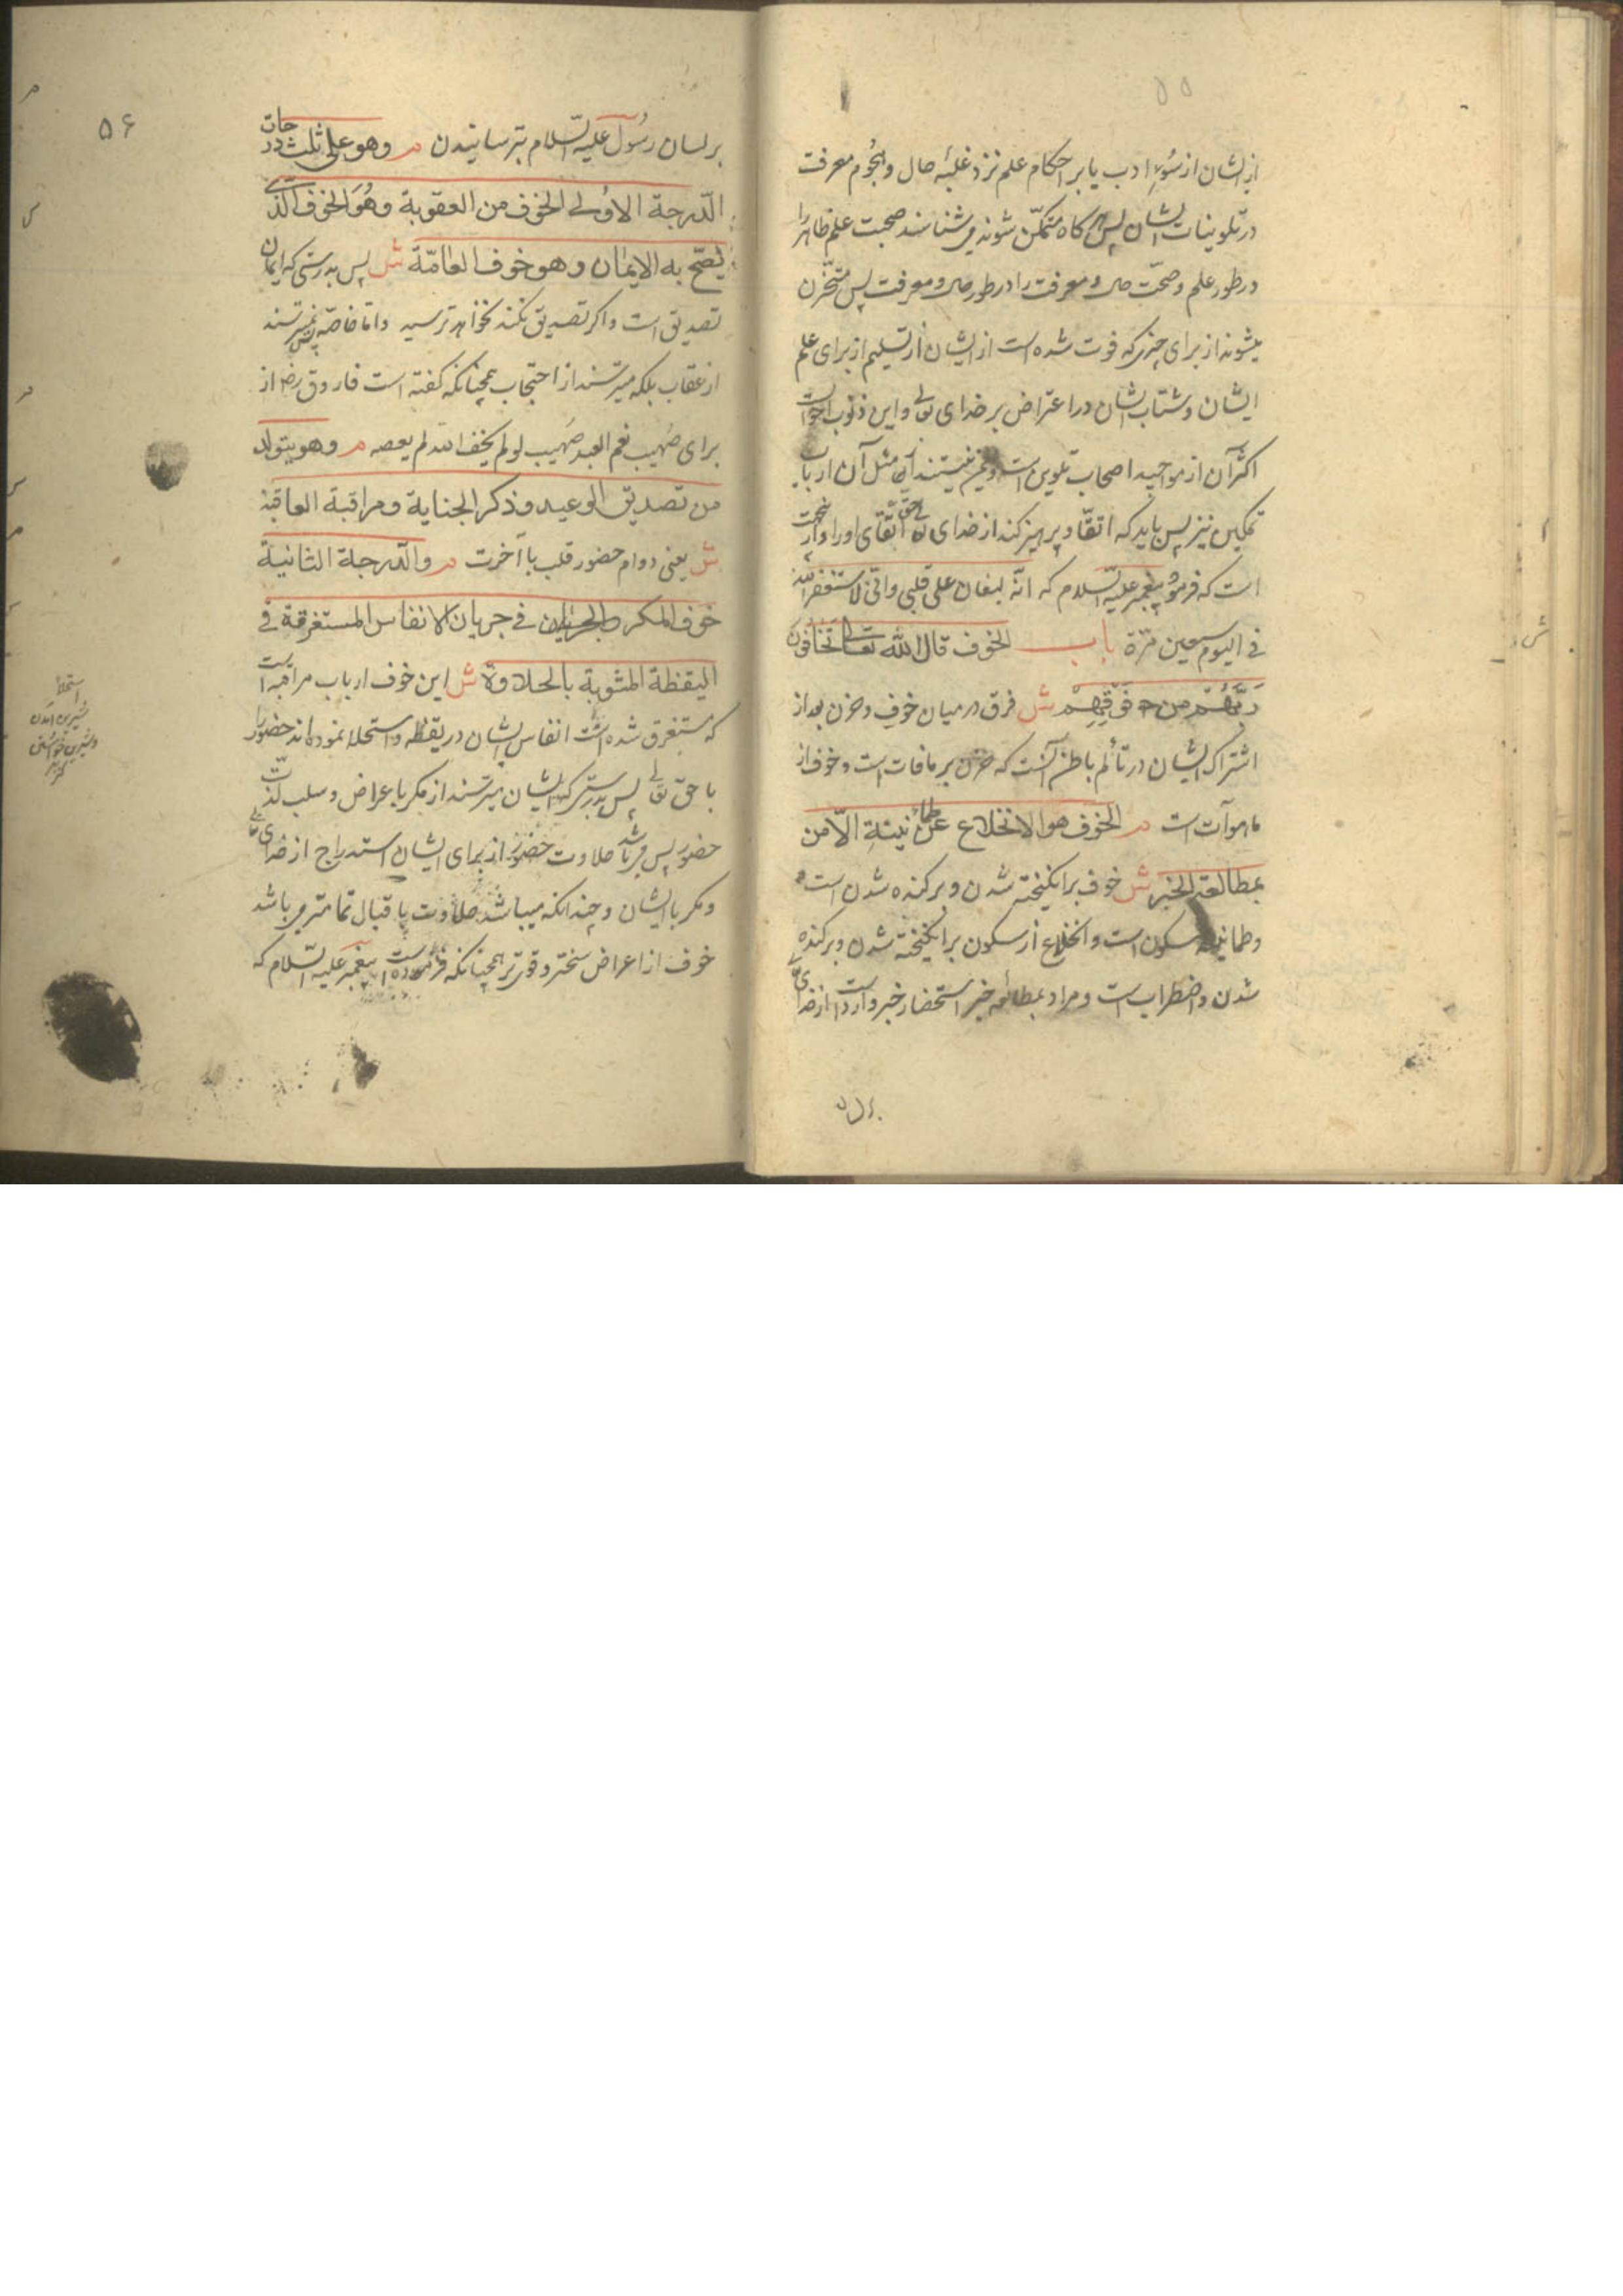 ۵۵
از ایشان از سُوءِ ادب یا بر احکام علم نزد غلبهٔ حال و هجُوم معرفت
در تلوینات ایشان پس هرکاه متمکّن شوند می‌شناسند صحبت علم ظاهر را
در طور علم و صحّت حال و معرفت را در طور حال و معرفت پس متحزّن
میشوند از برای چیزی که فوت شده است از ایشان از تسلیم از برای علم
ایشان و شتاب ایشان در اعتراض بر خدای تعالی و این ذنوب احوالست
اکثر آن از مواجید اصحاب تلوین است و نیستند مثل آن ارباب
تمکین نیز پس باید که اتقّا و پرهیز کند از خدای تعالی حق اتقّای او را و از
است که فرموُد پیغمبر علیه السّلام که انّه لیغان علی قلبی وانّی لاستغفر الله
فی الیوم سبعین مرّة باب الخوف قال الله تعالی تَخٰافُونَ
رَبَّهُمْ مِن فَوْقِهِمْ ش فرق در میان خوف و حزن بعد از
اشتراک ایشان در تألّم باطن آنست که حزن بر مافات است و خوف از
ماهوآت است م الخوف هو الانخلاع عن طمأنینةِ الاٴمن
بمطالعة الخبر ش خوف برانکیخته شدن و برکنده شدن است
و طمانینه سکون است و انخلاع از سکون برانکیخته شدن و برکنده
شدن و اضطراب است و مراد بمطالعه خبر استحضار خبر وارد است از خدای
برلسان
ش
۵۶
برلسان رسُول علیه السّلام بترسانیدن م وهو علی ثلث درجات
الدّرجة الاوُلی الخوف من العقوبة وهُوَ الخوف الّذی
یصّح به الایمٰان وهو خوف العامّة ش پس بدرستی که ایمان
تصدیق است و اکر تصدیق نکند نخواهد ترسید و امّا خاصّه پس نمیترسند
از عقاب بلکه میترسند از احتجاب همچنانکه کفته است فاروق رض از
برای صُهیب نعم العبد صُهیب لو لم یخف الله لم یعصه م وهو یتولد
من تصدیق الوعید وذکر الجنایة ومراقبة العاقبة
ش یعنی دوام حضور قلب با آخرت م والدّرجة الثانیة
خوف المکر فی جریان الانفاس المستغرقة فی
الیقظة المشوبة بالحلاوة ش این خوف ارباب مراقبه است
که مستغرق شده است انفاس ایشان در یقظه و استحلا نموده‌اند حضور را
با حق تعالی پس بدرستی که ایشان میترسند از مکر باعراض و سلب لذّت
حضور پس میباشد حلاوت حضور از برای ایشان استدراج از خدای تعالی
ومکر با ایشان و چندانکه میباشد حلاوت باقبال تمامتر می‌باشد
خوف از اعراض سختر و قوی‌تر همچنانکه فرموده است پیغمبر علیه السّلام که
استحلا
شیرین آمدن
و شیرین
کنز